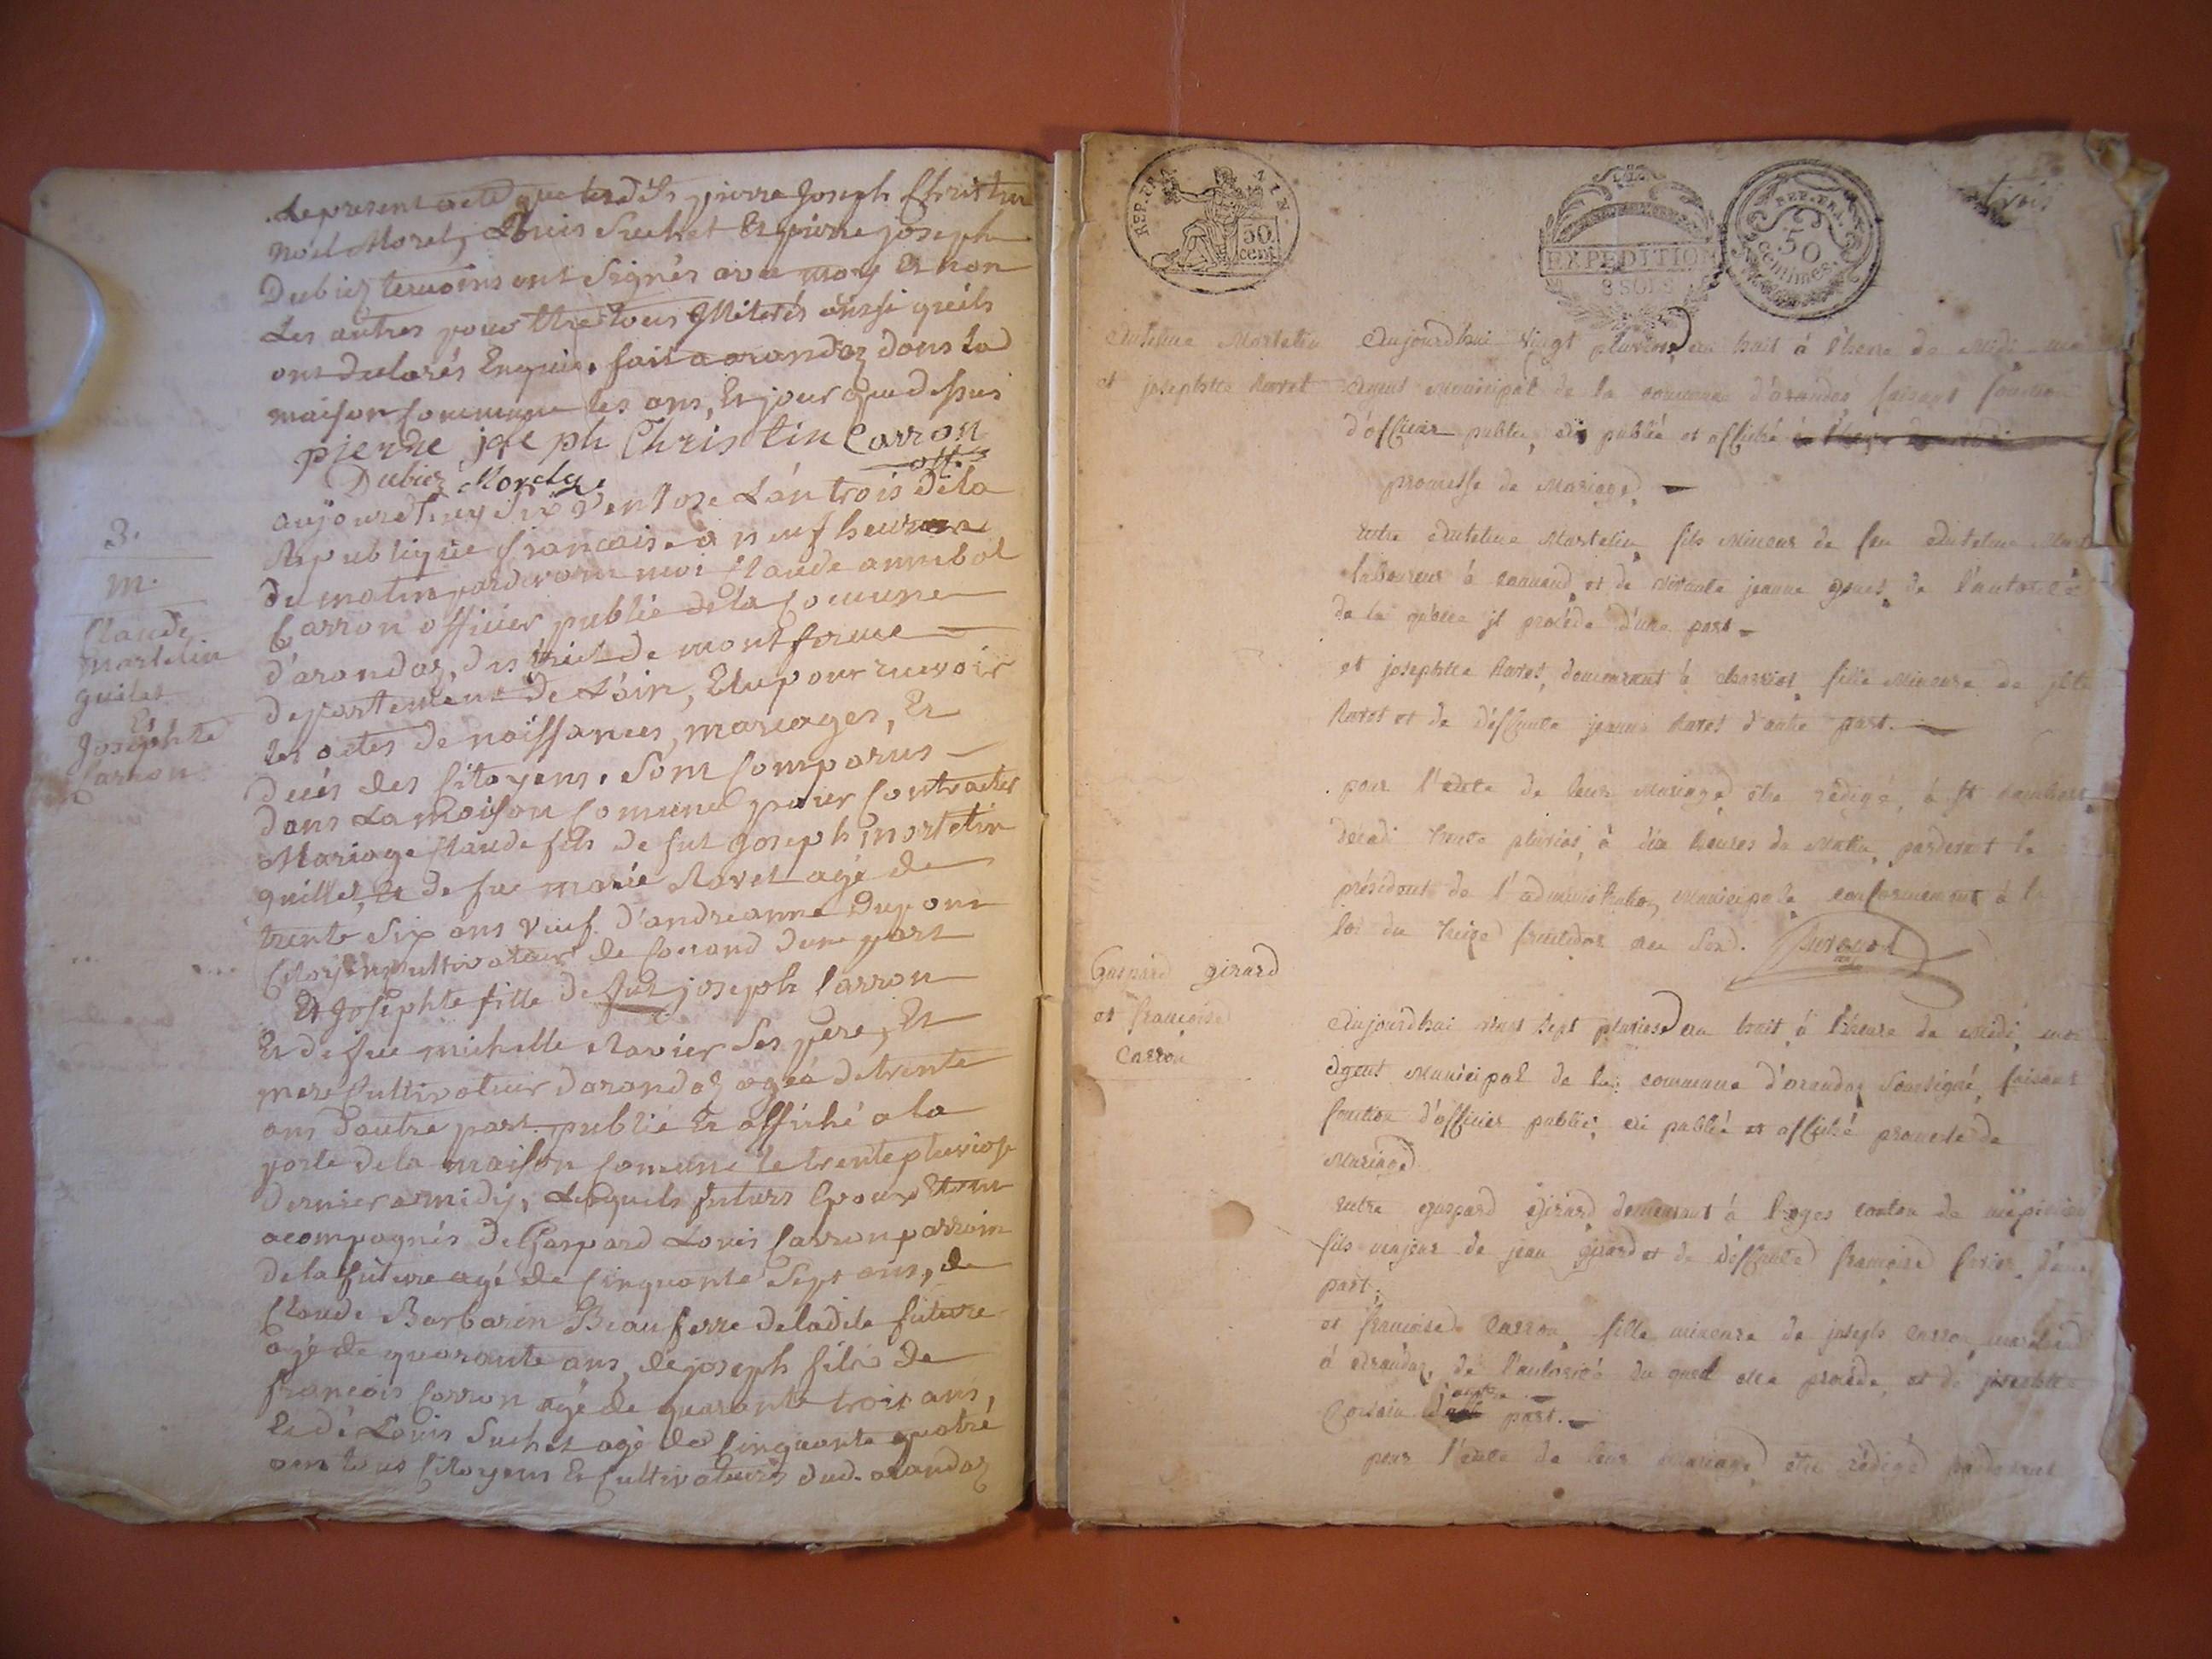 .Le present acte que lesdits pierre Joseph Christin
Noel Morel, Louis Suchet Et pierre joseph
Dubiez temoins ont Signés avec moy Et non
Les autres pour être tous Illiterés ainsi quils
ont declarés Enquis. fait a arandaz dans la
maison Commune les ans, Et jour que dessus
pierre joseph Christin Carron
off.
Dubiez Morel
3.
m.
Claude
martelin
guilet
Et
Josephte
Carron
aujourdhuy Six Ventose L'an trois de la
Republique francaise a neuf heures
du matin pardevant moi Claude annibal
Carron officier public de la Comune
d'arandaz, district de montferme
departement de L'ain, Elu pour recevoir
les actes de naissances, mariages, Et
deces des Citoyens. Sont Comparus
dans La maison Comune pour Contracter
Mariage Claude fils de fut Joseph martelin
guillet, Et de fue marie Ravet agé de
trente Six ans veuf d'andreanne Dupont
Citoyen Cultivateur de Conand dune part
Et Josephte fille de fut joseph Carron
Et de fue michelle Ravier Ses pere, Et
mere Cultivateur darandaz ageé de trente
ans dautre part. publié Et affiché a la
porte de la maison Comune le trente pluviose
dernier a midy, Lesquels futurs Epoux Etant
acompagnés de Gaspard Louis Carron parrain
de la future agé de Cinquante Sept ans, de
Claude Barbarin Beaufrere de ladite future
agé de quarante ans, de joseph fils de
francois Carron agé de quarante trois ans,
Et de Louis Suchet agé de Cinquante quatre
ans tous Citoyens Et Cultivateurs dud. arandaz
REP. FRA.
50
cent.
EXPEDITION
8 SOLS
REP. FRA.
50
Centimes
trois
Antelme Martelin
et josephtte Ravet
Aujourdhui Vingt pluviose an huit à l'heure de Midi moi
Agent Municipal de la commune d'arandas faisant fonction
d'officier public, ai publié et affiché à l'heure de midi
promesse de Mariage
entre Antelme Martelin fils Mineur de feu Antelme
laboureur à conand, et de vivante jeanne de l'autorité
de la quelle il procède d'une part
et josephtte Ravet, demeurant à fille Mineure de
Ravet et de déffunte jeanne Ravet d'autre part.
pour l'acte de leur Mariage être rédigé, à St Rambert
décadi trente pluviose, à dix heures du Matin, pardevant le
président de l'administration Municipale conformement à la
loi du treize fructidor an Six.
Gaspard girard
et francoise
Carron
Aujourdhui vingt Sept pluviose an huit à l'heure de Midi, moi
Agent Municipal de la commune d'arandas Soussigné, faisant
fonction d'officier public, ai publié et affiché promesse de
Mariage
entre gaspard Girard demeurant à l'oges canton de
fils majeur de jean Girard et de déffunte francoise d'une
part;
et francoise Carron, fille mineure de joseph Carron, marchand
à Arandas, de l'autorité du quel elle procède, et de josephtte
d'autre part.
pour l'acte de leur Mariage, être rédigé pardevant